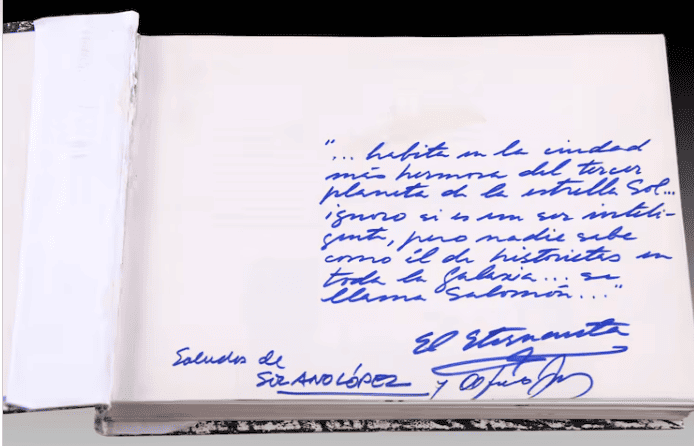 "... habita en la ciudad
más hermosa del tercer
planeta de la estrella Sol...
ignoro si es un ser inteli-
gente, pero nadie sabe
como él de historietas en
toda la Galaxia... se
llama Salomón..."
El Eternauta
Saludos de
SOLANO LÓPEZ
y